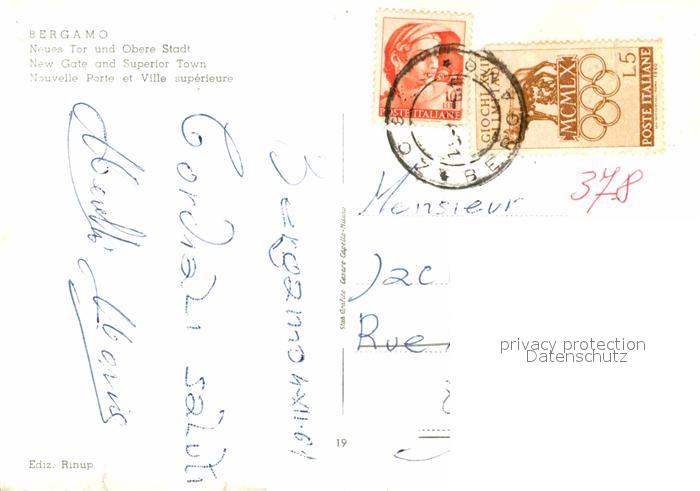 BERGAMO
Neues Tor und Obere Stadt
New Gate and Superior Town
Nouvelle Porte et Ville supérieure
POSTE ITALIANE
GIOCHI
MCMLX
L5
POSTE ITALIANE
BERG
378
Monsieur
Jac
Rue
privacy protection
Datenschutz
Bergamo 4-XII-61
Cordiali saluti
Stab. Grafico Cesare Capello - Milano
19
Ediz. Rinup